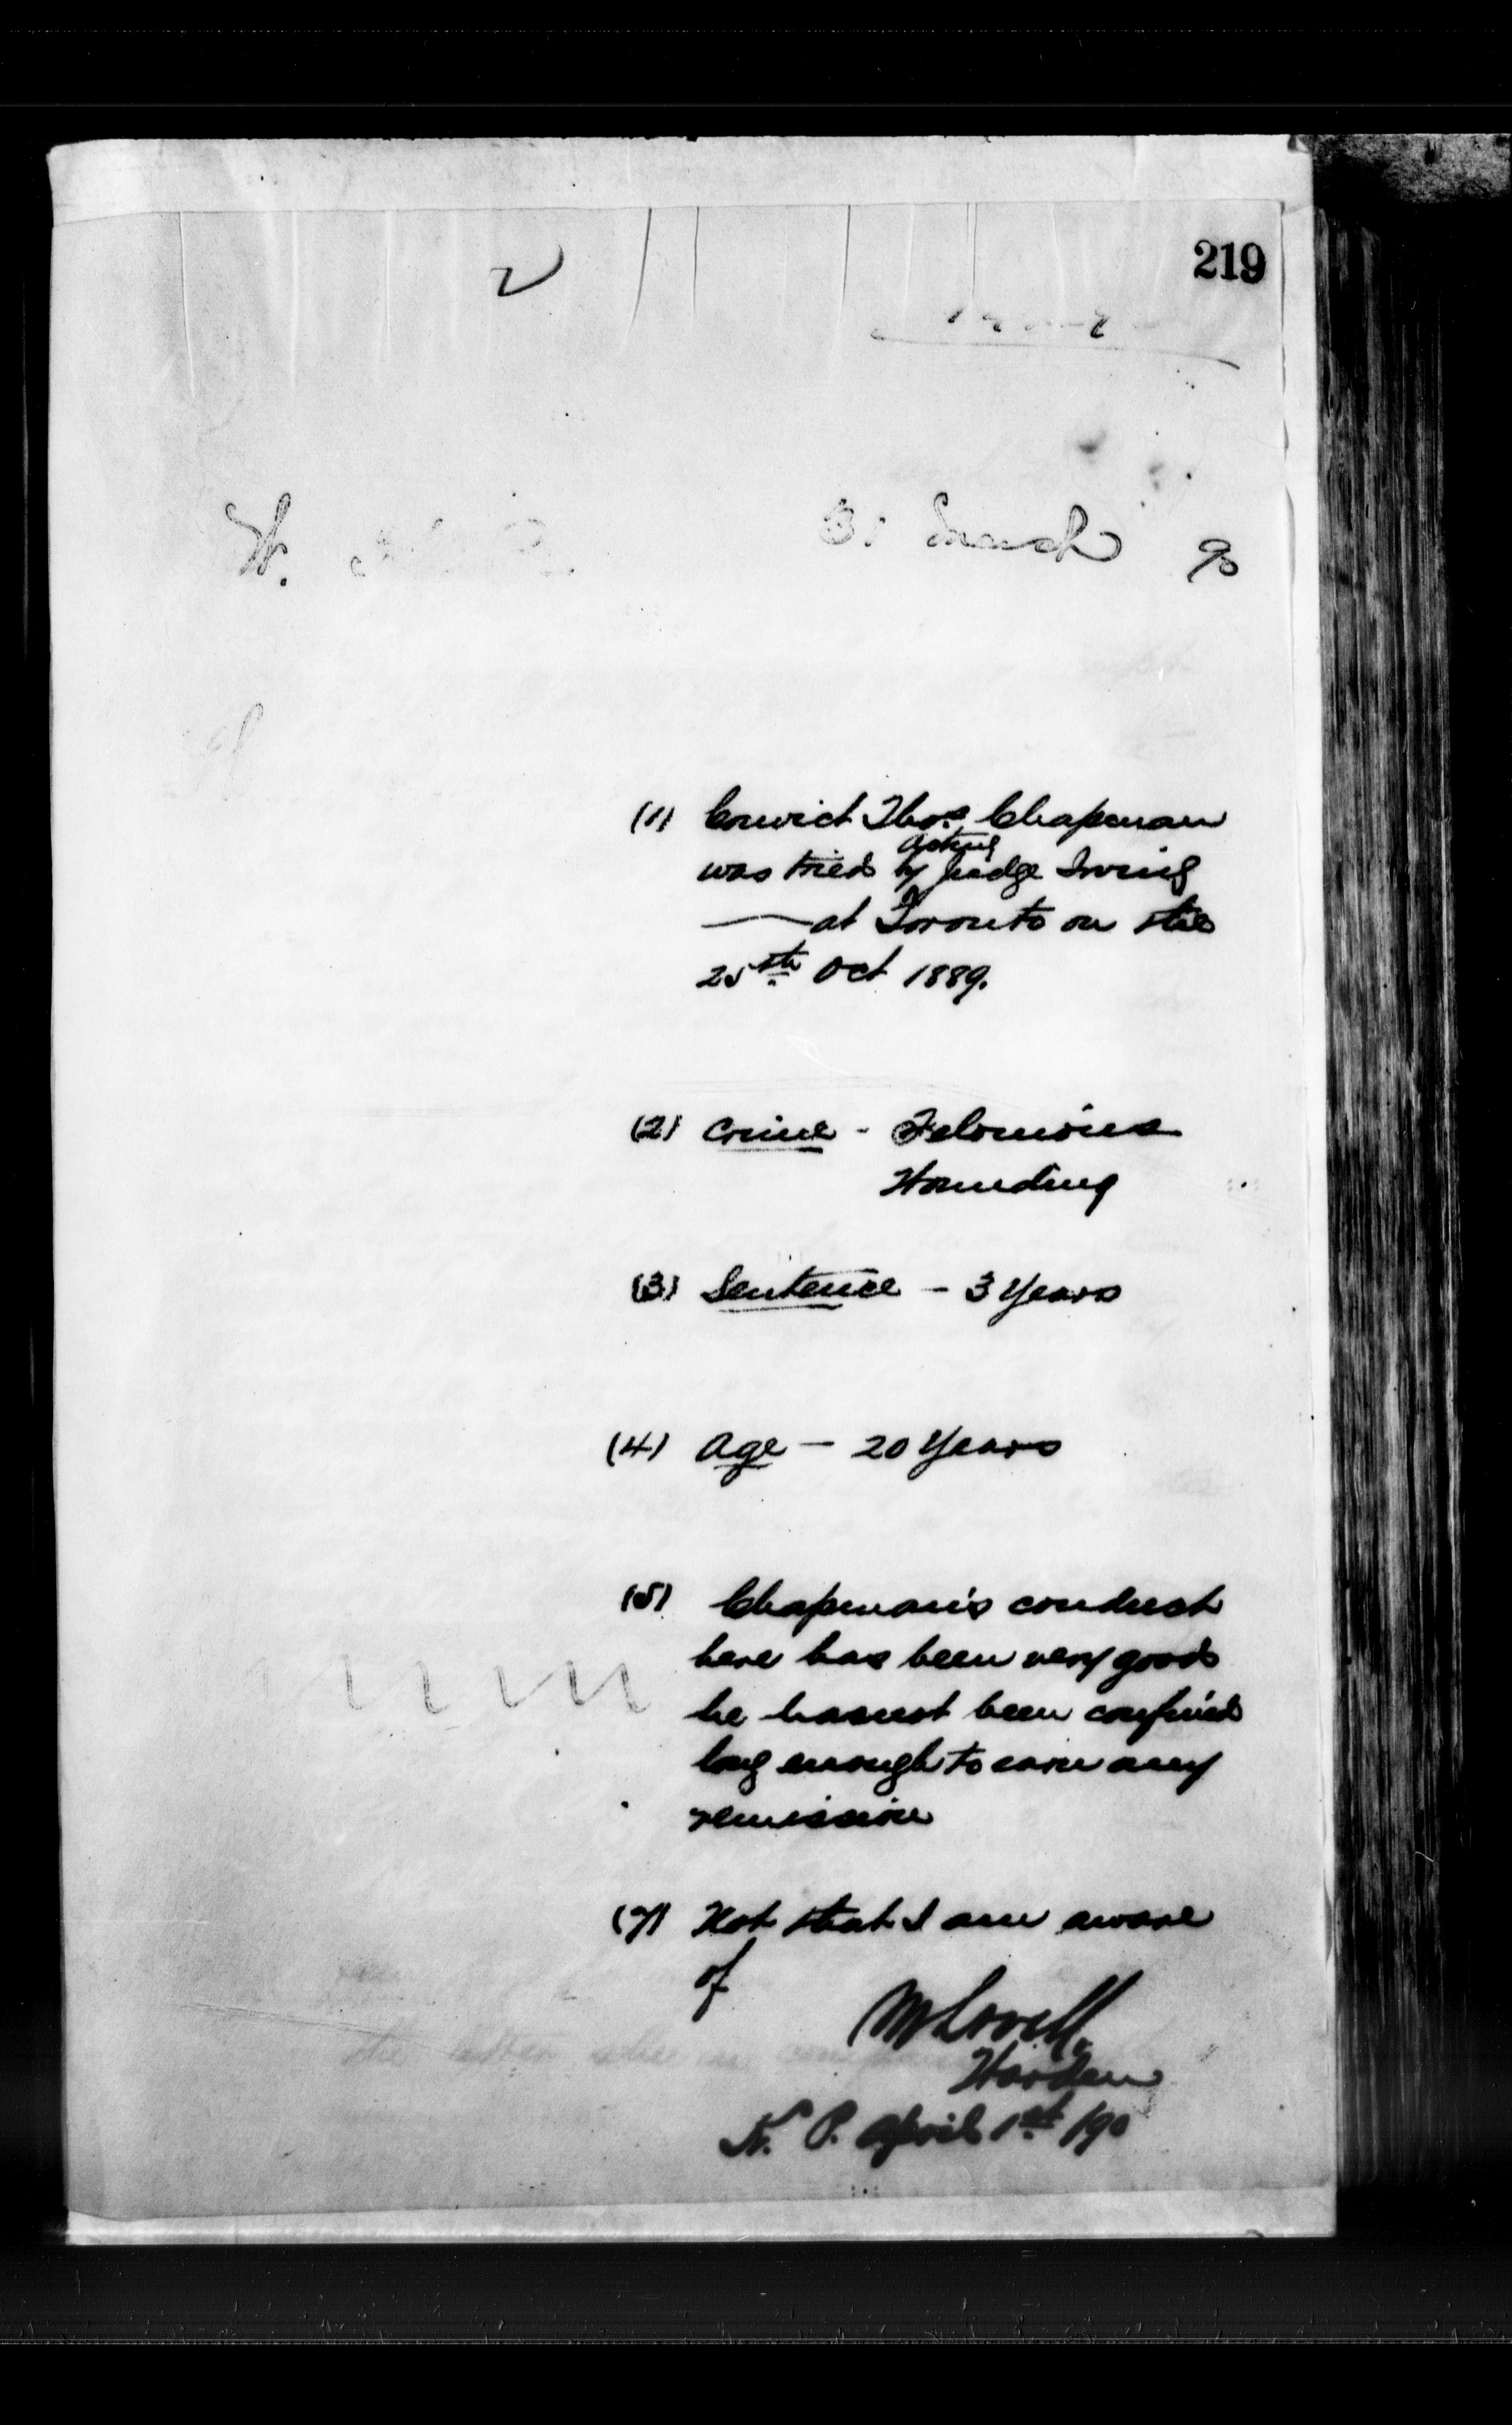 219
2
31 March 90
(1) Convict Thos. Chapman
acting
was tried by Judge Irving
— at Toronto on the
25th Oct 1889.
(2) Crime - Felonious
Wounding
(3) Sentence - 3 Years
(4) Age - 20 Years
(5) Chapman's conduct
here has been very good
he has not been confined
long enough to earn any
remission
(7) Not that I am aware
of
M Lavell,
Warden
K. P. April 1st /90